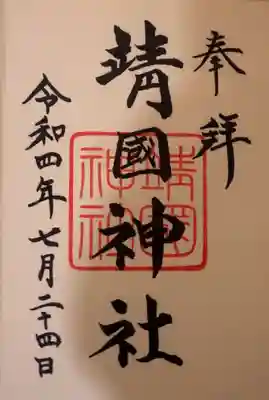 奉拜
靖國神社
靖國神社
令和四年七月二十四日